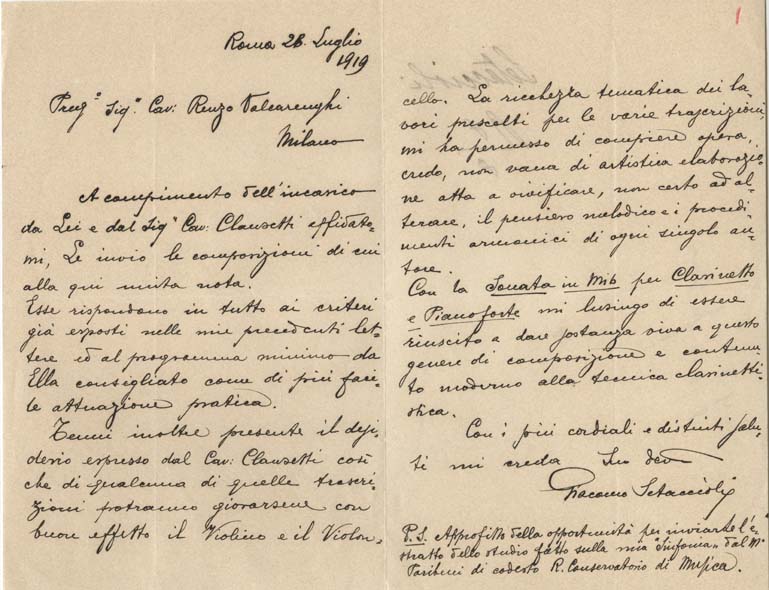 Roma 28. Luglio
1919
Preg.º Sig.º Cav: Renzo Valcarenghi
Milano
A compimento dell'incarico
da Lei e dal Sig.º Cav: Clausetti affidato-
mi, Le invio le composizioni di cui
alla qui unita nota.
Esse rispondono in tutto ai criteri
già esposti nelle mie precedenti let-
tere ed al programma minimo da
Ella consigliato come di più faci-
le attuazione pratica.
Tenni inoltre presente il desi-
derio espresso dal Cav: Clausetti così
che di qualcuna di quelle trascri-
zioni potranno giovarsene con
buon effetto il Violino e il Violon-
1
cello. La ricchezza tematica dei la-
vori prescelti per le varie trascrizioni,
mi ha permesso di compiere opera,
credo, non vana di artistica elaborazio-
ne atta a vivificare, non certo ad al-
terare, il pensiero melodico e i procedi-
menti armonici di ogni singolo au-
tore.
Con la Sonata in Mib per Clarinetto
e Pianoforte mi lusingo di essere
riuscito a dare sostanza viva a questo
genere di composizione e contenu-
to moderno alla tecnica clarinetti-
stica.
Con i più cordiali e distinti salu-
ti mi creda Suo dev
Giacomo Setaccioli
P.S. Approfitto della opportunità per inviarLe l'e-
stratto dello studio fatto sulla mia "Sinfonia" dal Mº
Paribeni di codesto R. Conservatorio di Musica.